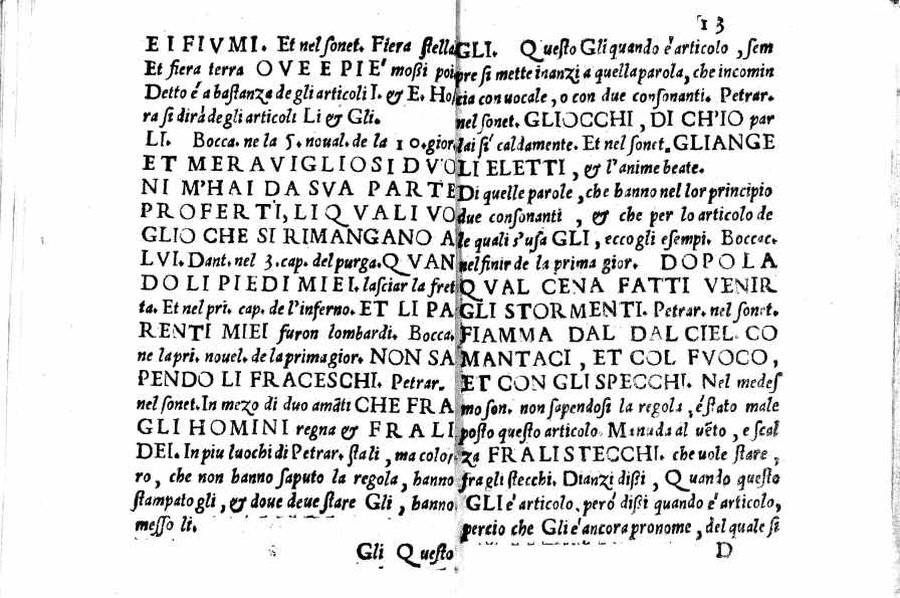 E I FIVMI. Et nel ſonet. Fiera ſtella
Et fiera terra OVE E PIE' moßi poi
Detto é a baſtanza de gli articoli I. & E. Ho
ra ſi dirà de gli articoli Li & Gli.
LI. Bocca. ne la 5. noual. de la 10. gior.
ET MERAVIGLIOSI DVO
NI M'HAI DA SVA PARTE
PROFERTI, LI QVALI VO
GLIO CHE SI RIMANGANO A
LVI. Dant. nel 3. cap. del purga. QVAN
DO LI PIEDI MIEI. laſciar la fret
ta. Et nel pri. cap. de l'inferno. ET LI PA
RENTI MIEI furon lombardi. Bocca.
ne la pri. nouel. de la prima gior. NON SA
PENDO LI FRACESCHI. Petrar.
nel ſonet. In mezo di duo amãti CHE FRA
GLI HOMINI regna & FRA LI
DEI. In piu luochi di Petrar. ſtali, ma colo
ro, che non hanno ſaputo la regola, hanno
ſtampato gli, & doue deue ſtare Gli, hanno
meſſo li.
Gli Queſto
13
GLI. Queſto Gli quando é articolo, ſem
pre ſi mette inanzi a quella parola, che incomin
cia con uocale, o con due conſonanti. Petrar.
nel ſonet. GLIOCCHI, DI CH'IO par
lai ſi' caldamente. Et nel ſonet. GLIANGE
LI ELETTI, & l'anime beate.
Di quelle parole, che hanno nel lor principio
due conſonanti, & che per lo articolo de
le quali s'uſa GLI, eccogli eſempi. Boccac.
nel finir de la prima gior. DOPO LA
QVAL CENA FATTI VENIR
GLI STORMENTI. Petrar. nel ſonet.
FIAMMA DAL DAL CIEL CO
MANTACI, ET COL FVOCO,
ET CON GLI SPECCHI. Nel medeſ
mo ſon. non ſapendoſi la regola, é ſtato male
poſto queſto articolo. Manda al uẽto, e ſcal
za FRA LI STECCHI. che uole ſtare,
fra gli ſtecchi. Dianzi dißi, Quando queſto
GLI é articolo. peró dißi quando é articolo,
percio che Gli é ancora pronome, del quale ſi
D